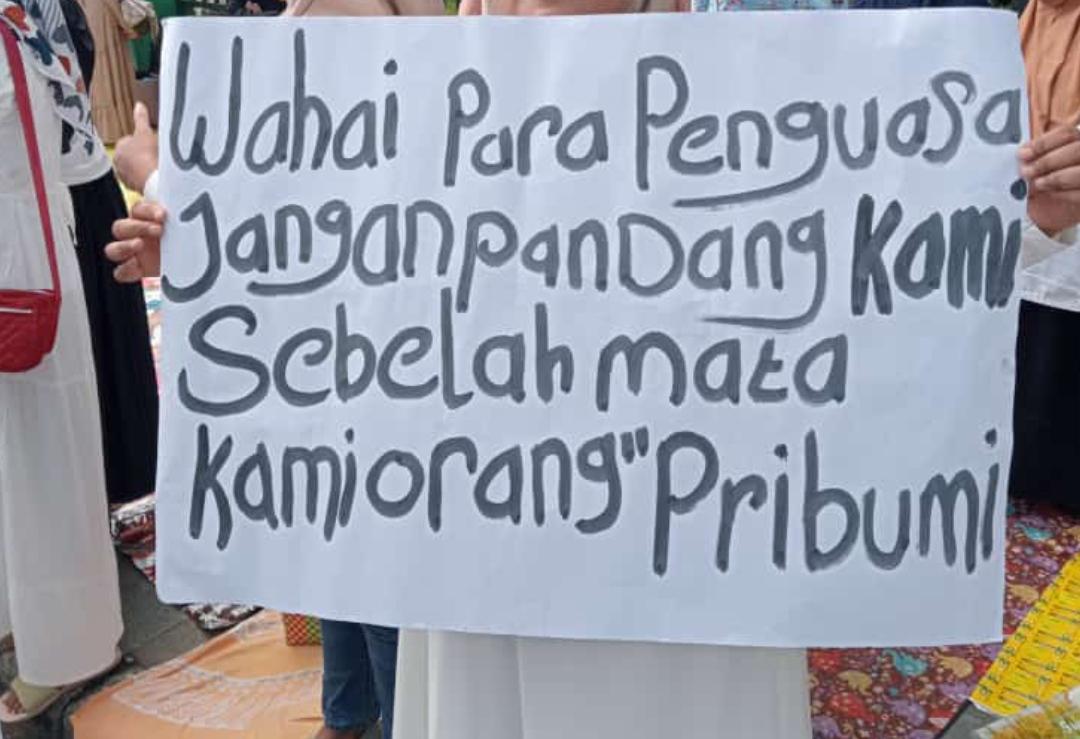 Wahai Para Penguasa
Jangan panDang Kami
Sebelah mata
Kami orang "Pribumi